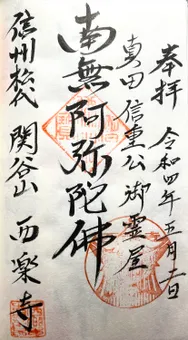 奉拝 令和四年五月十一日
真田信重公御霊屋
南無阿弥陀佛
信州松代 関谷山 西楽寺